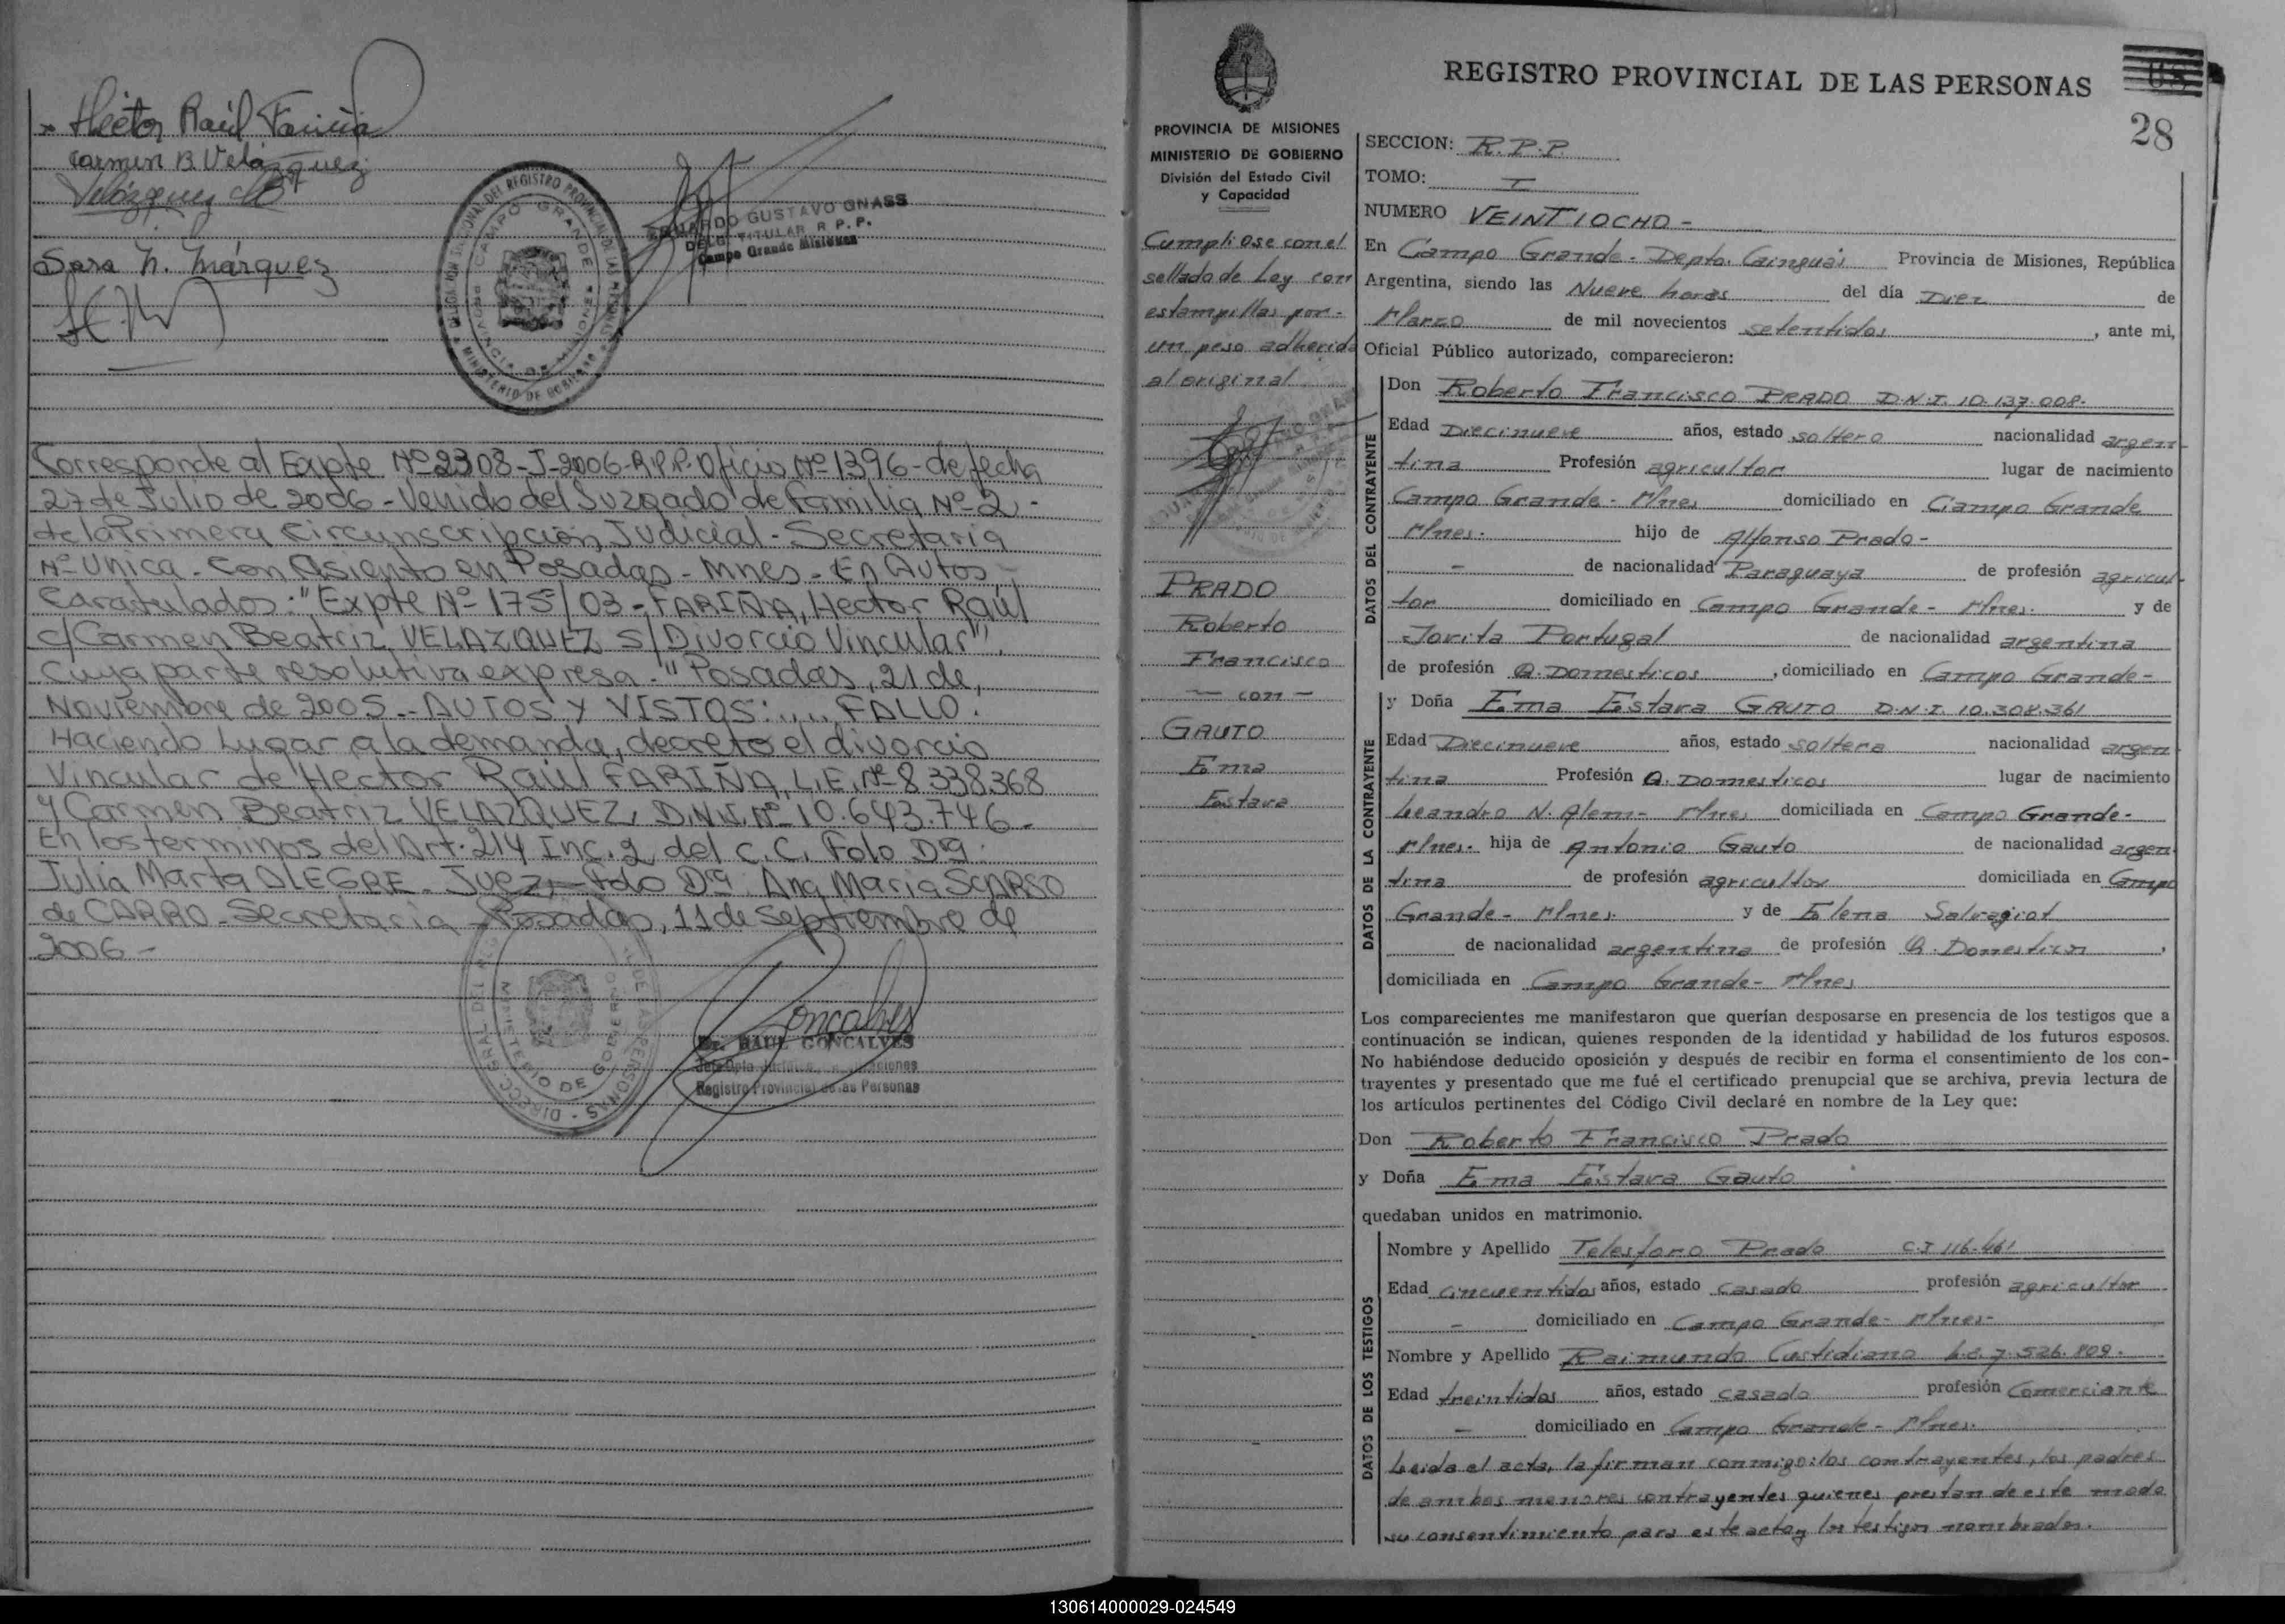 Héctor Raúl Fariña
Carmen B. Velázquez
Velázquez CB
Sara N. Márquez
DELEGACION SECCIONAL DEL REGISTRO PROVINCIAL DE LAS PERSONAS
MINISTERIO DE GOBIERNO
CAMPO GRANDE
PROVINCIA DE MISIONES
EDUARDO GUSTAVO GNASS
DELEG. TITULAR R. P. P.
Campo Grande Misiones
Corresponde al Expte Nº 2308-J-2006-R.P.P. Oficio Nº 1396- de fecha
27 de Julio de 2006 - Venido del Juzgado de Familia Nº 2 -
de la Primera Circunscripción Judicial - Secretaria
Nº Unica - Con Asiento en Posadas - Mnes - En Autos
Caratulados: "Expte Nº 175/03 - FARIÑA, Hector Raúl
c/ Carmen Beatriz VELAZQUEZ S/ Divorcio Vincular"
Cuya parte resolutiva expresa - "Posadas, 21 de,
Noviembre de 2005 - AUTOS Y VISTOS: .... FALLO:
Haciendo Lugar a la demanda, decreto el divorcio
Vincular de Hector Raúl FARIÑA, L.E. Nº 8 338.368
y Carmen Beatriz VELAZQUEZ, D.N.I. Nº 10.643.746 -
En los terminos del Art. 214 Inc. 2 del C.C. Fdo Dra.
Julia Marta ALEGRE - Juez - Fdo Dra Ana Maria SCARSO
de CARRO - Secretaria - Posadas, 11 de Septiembre de
2006 -
MINISTERIO DE GOBIERNO
Goncalves
Dr. RAUL GONCALVES
Registro Provincial de las Personas
REGISTRO PROVINCIAL DE LAS PERSONAS
28
PROVINCIA DE MISIONES
MINISTERIO DE GOBIERNO
División del Estado Civil
y Capacidad
Cumpliose con el
sellado de Ley con
estampillas por -
un peso adherida
al original
PRADO
Roberto
Francisco
— con —
GAUTO
Ema
Estara
SECCION: R.P.P.
TOMO: I
NUMERO VEINTIOCHO -
En Campo Grande - Depto. Cainguás Provincia de Misiones, República
Argentina, siendo las Nueve horas del día Diez de
Marzo de mil novecientos setentidos, ante mi,
Oficial Público autorizado, comparecieron:
DATOS DEL CONTRAYENTE
Don Roberto Francisco PRADO D.N.I. 10.137.008.
Edad Diecinueve años, estado soltero nacionalidad argen-
tina Profesión agricultor lugar de nacimiento
Campo Grande - Mnes domiciliado en Campo Grande
Mnes. hijo de Alfonso Prado -
- de nacionalidad Paraguaya de profesión agricul-
tor domiciliado en Campo Grande - Mnes. y de
Jovita Portugal de nacionalidad argentina
de profesión Q. Domesticos, domiciliado en Campo Grande -
DATOS DE LA CONTRAYENTE
y Doña Ema Estara GAUTO D.N.I. 10.308.361
Edad Diecinueve años, estado soltera nacionalidad argen
tina Profesión Q. Domesticos lugar de nacimiento
Leandro N. Alem - Mnes domiciliada en Campo Grande -
Mnes. hija de Antonio Gauto de nacionalidad argen
tina de profesión agricultor domiciliada en Campo
Grande - Mnes. y de Elena
de nacionalidad argentina de profesión Q. Domesticos,
domiciliada en Campo Grande - Mnes
Los comparecientes me manifestaron que querían desposarse en presencia de los testigos que a
continuación se indican, quienes responden de la identidad y habilidad de los futuros esposos.
No habiéndose deducido oposición y después de recibir en forma el consentimiento de los con-
trayentes y presentado que me fué el certificado prenupcial que se archiva, previa lectura de
los artículos pertinentes del Código Civil declaré en nombre de la Ley que:
Don Roberto Francisco Prado
y Doña Ema Estara Gauto
quedaban unidos en matrimonio.
DATOS DE LOS TESTIGOS
Nombre y Apellido Telesforo Prado C.I 116.461
Edad cincuentidos años, estado casado profesión agricultor
- domiciliado en Campo Grande - Mnes -
Nombre y Apellido Raimundo Custidiano L.E. 7.526.809.
Edad treintidos años, estado casado profesión Comerciante
- domiciliado en Campo Grande - Mnes.
Leida el acta, la firman conmigo: los contrayentes, los padres
de ambos menores contrayentes quienes prestan de este modo
su consentimiento para este acto y los testigos nombrados.
130614000029-024549